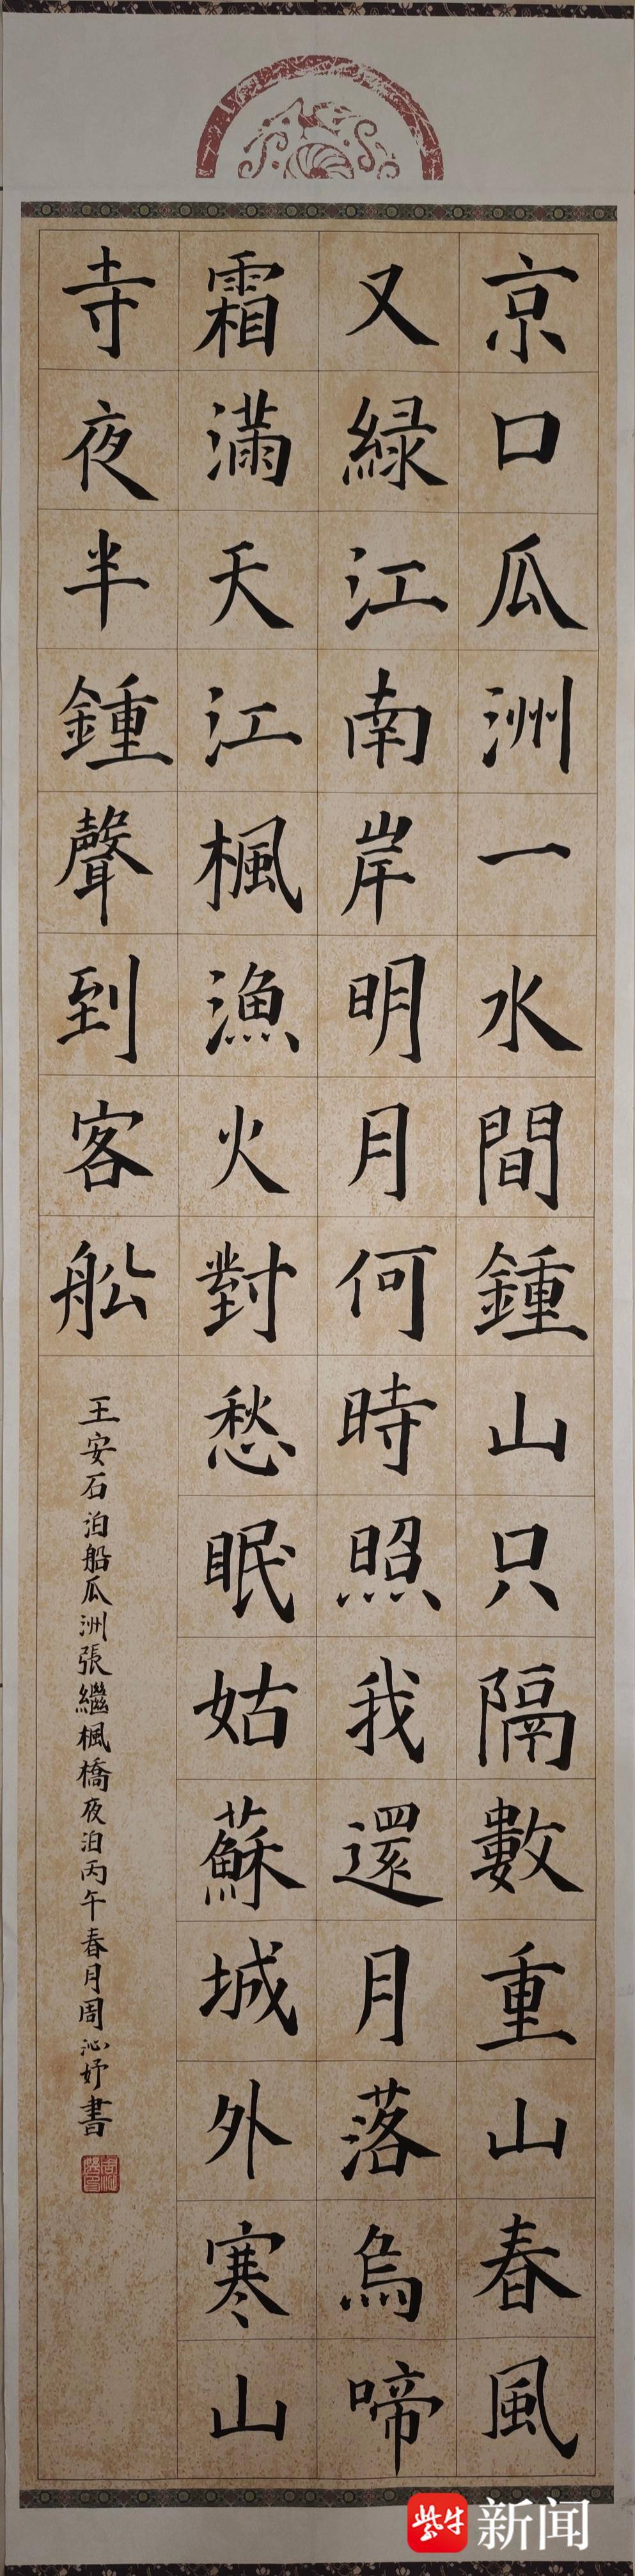 京口瓜洲一水間鍾山只隔數重山春風
又緑江南岸明月何時照我還月落烏啼
霜滿天江楓漁火對愁眠姑蘇城外寒山
寺夜半鍾聲到客船
王安石泊船瓜洲張繼楓橋夜泊丙午春月周沁妤書
紫牛新闻